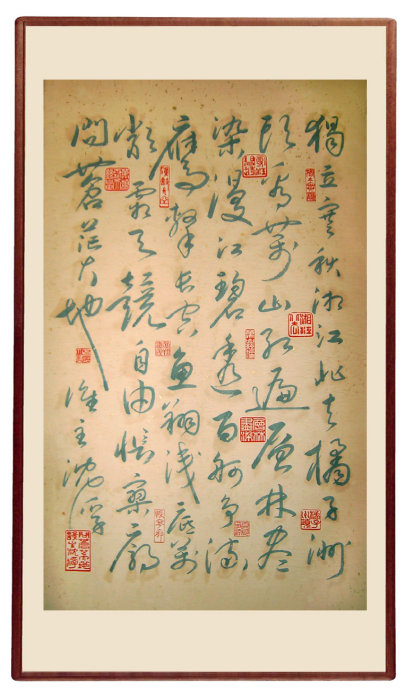 獨立寒秋湘江北去橘子洲
頭看萬山紅遍層林盡
染漫江碧透百舸爭流
鷹擊長空魚翔淺底萬
類霜天競自由悵寥廓
問蒼茫大地誰主沉浮